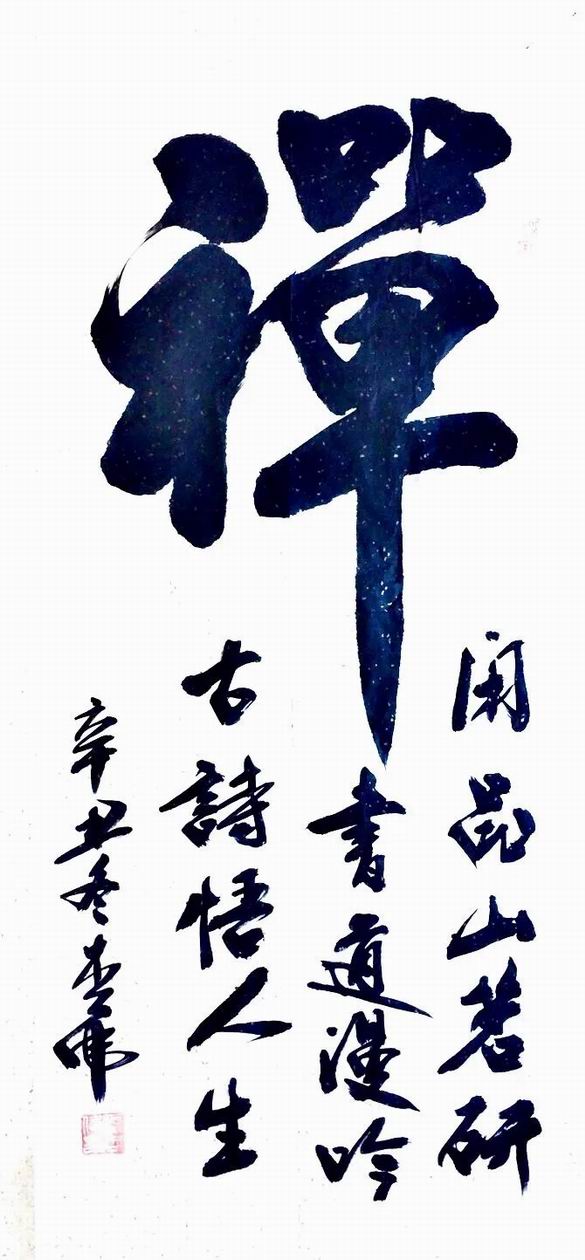 禪
閑品山茗研
書道漫吟
古詩悟人生
辛丑冬